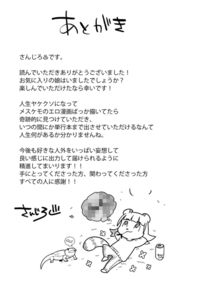 あとがき
さんじろです。
読んでいただきありがとうございました！
お気に入りの娘はいましたでしょうか？
楽しんでいただけたなら幸いです！
人生ヤケクソになって
メスケモのエロ漫画ばっか描いてたら
奇跡的に見つけていただき、
いつの間にか単行本まで出させていただけるなんて
人生何があるか分かりませんね。
今後も好きな人外をいっぱい妄想して
良い感じに出力して届けられるように
精進してまいります！！
手にとってくださった方、関わってくださった方
すべての人に感謝！！
さんじろ